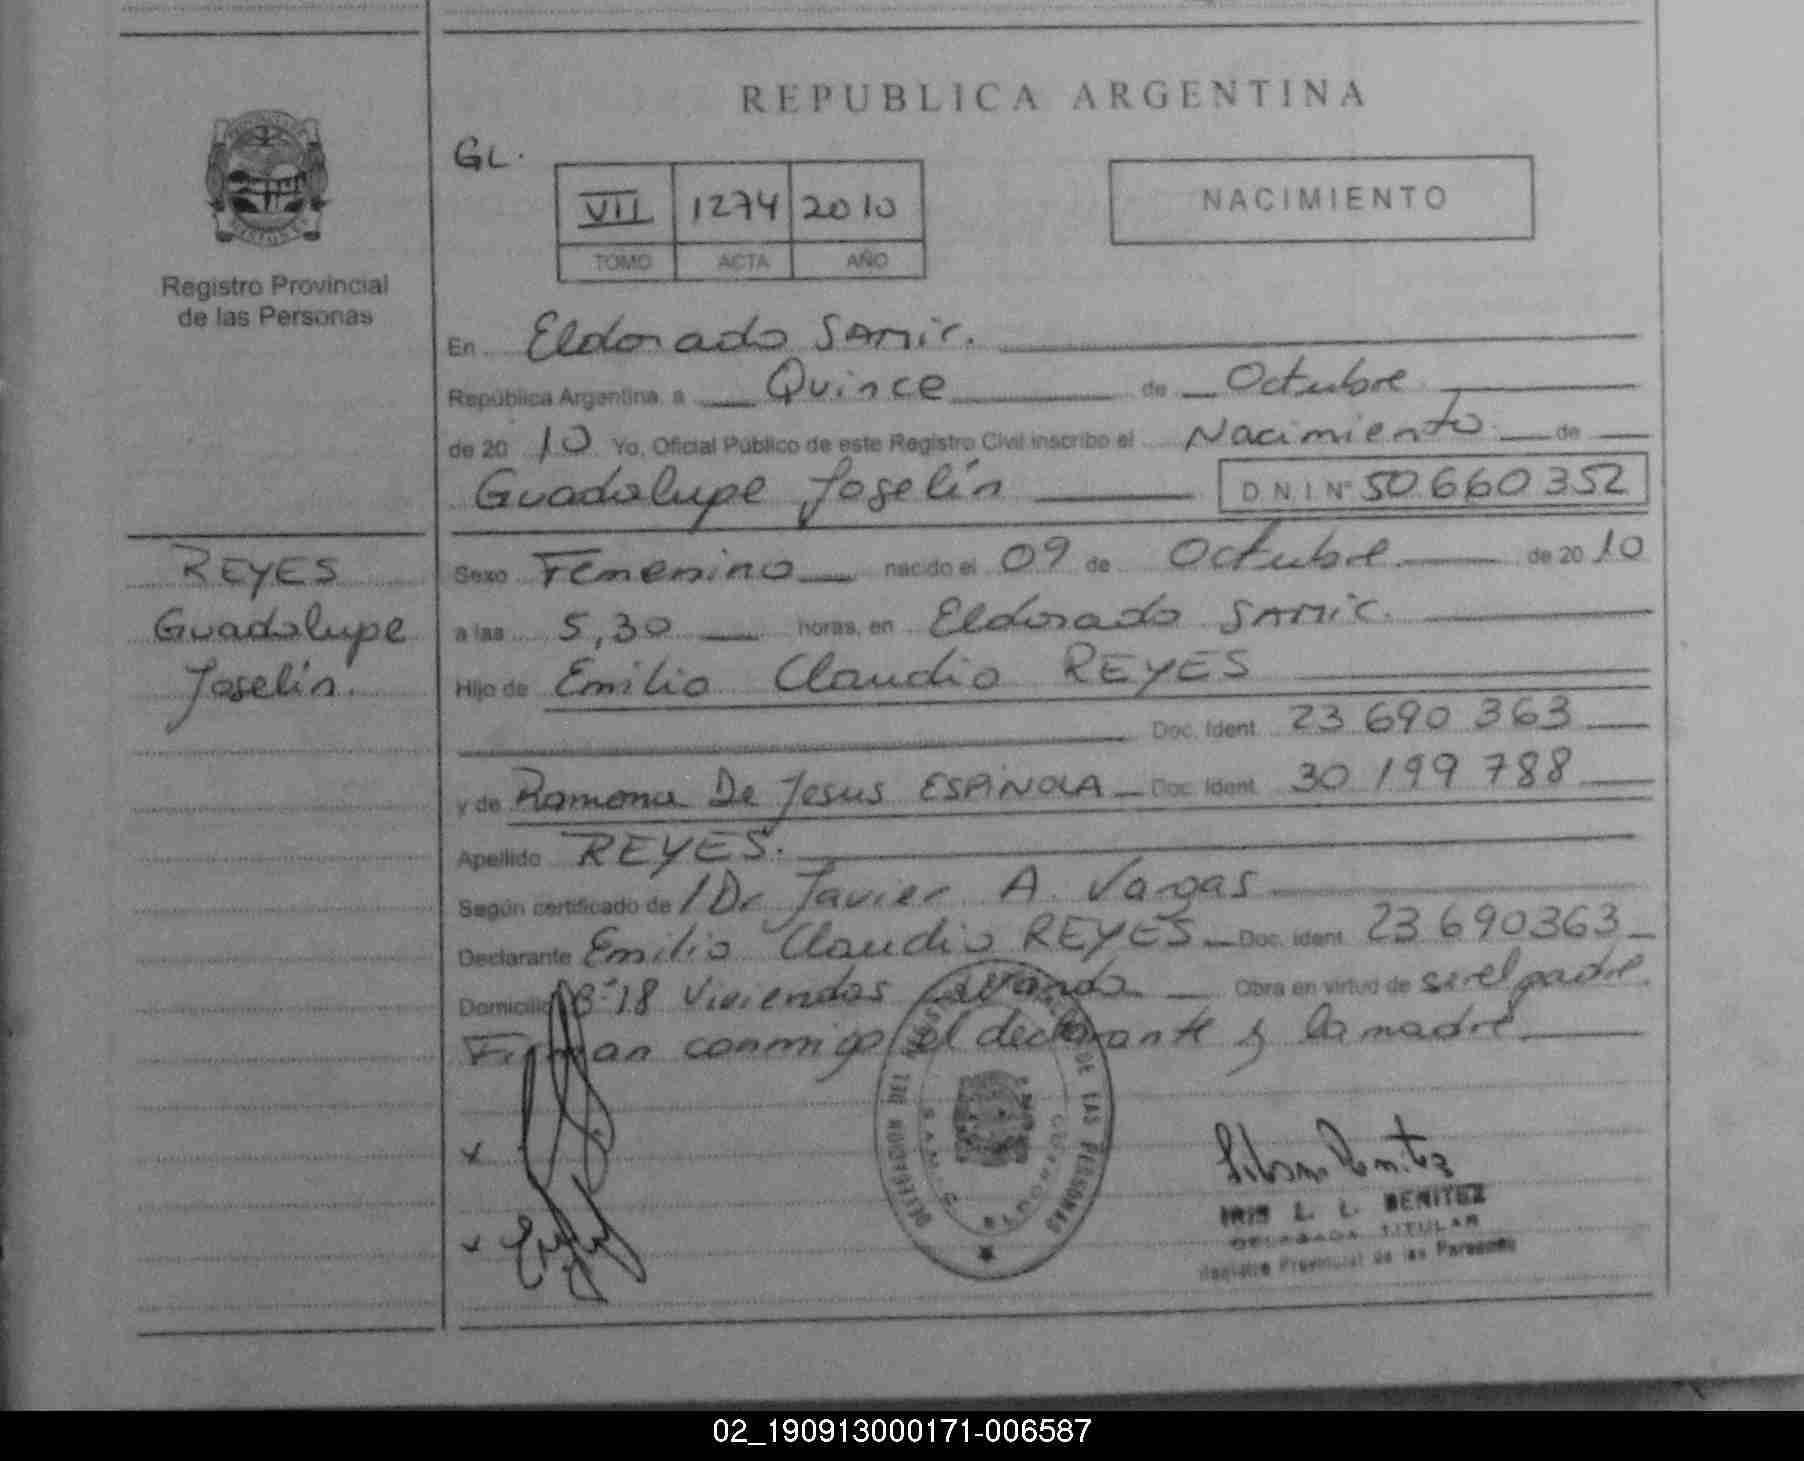 REPUBLICA ARGENTINA
GL.
VII 1274 2010
TOMO ACTA AÑO
NACIMIENTO
Registro Provincial
de las Personas
En Eldorado SAMIC.
República Argentina, a Quince de Octubre
de 20 10 Yo, Oficial Público de este Registro Civil inscribo el Nacimiento de
Guadalupe Joselín D.N.I. Nº 50.660.352
REYES
Guadalupe
Joselín.
Sexo Femenino nacido el 09 de Octubre de 20 10
a las 5,30 horas, en Eldorado SAMIC.
Hijo de Emilio Claudio REYES
Doc. Ident. 23 690 363
y de Ramona De Jesus ESPINOLA Doc. Ident. 30 199 788
Apellido REYES.
Según certificado de / Dr Javier A. Vargas
Declarante Emilio Claudio REYES Doc. Ident. 23 690363
Domicilio Bº 18 Viviendas Obra en virtud de ser el padre.
Firman conmigo el declarante y la madre
x
x
DELEGACION DEL REGISTRO PROVINCIAL DE LAS PERSONAS
S.A.M.I.C. ELDORADO
IRIS L. L. BENITEZ
DELEGADA TITULAR
Registro Provincial de las Personas
02_190913000171-006587